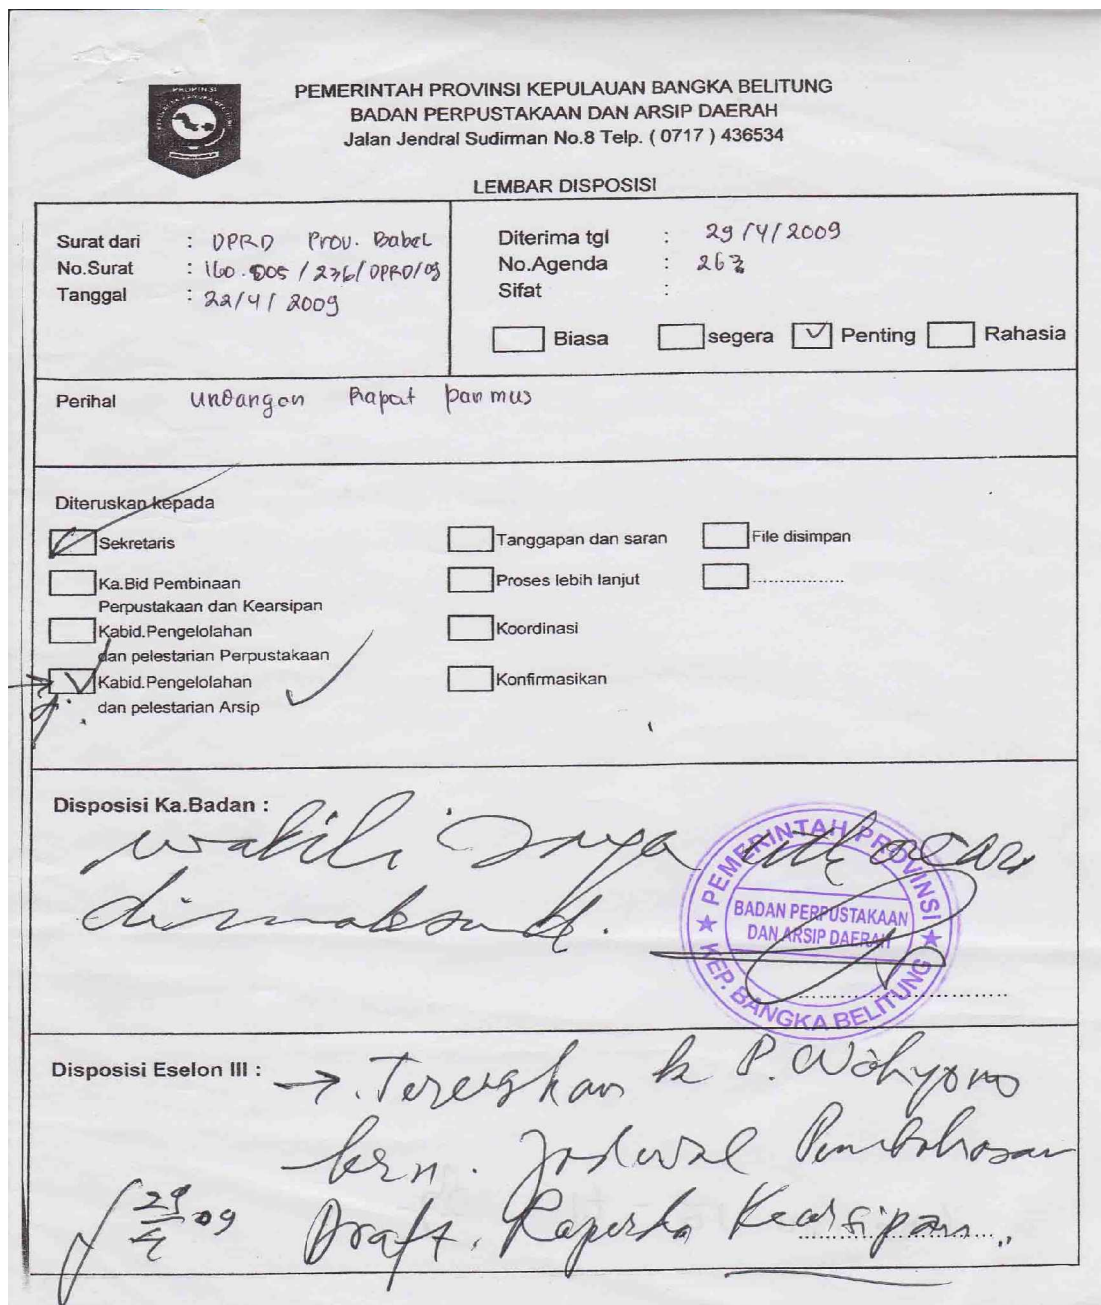 PEMERINTAH PROVINSI KEPULAUAN BANGKA BELITUNG
BADAN PERPUSTAKAAN DAN ARSIP DAERAH
Jalan Jendral Sudirman No.8 Telp. ( 0717 ) 436534
LEMBAR DISPOSISI
Surat dari : DPRD Prov. Babel
No.Surat : 160.005/236/DPRD/09
Tanggal : 22/4/2009
Diterima tgl : 29/4/2009
No.Agenda : 263
Sifat :
Biasa segera Penting Rahasia
Perihal undangan Rapat panmus
Diteruskan kepada
Sekretaris
Ka.Bid Pembinaan
Perpustakaan dan Kearsipan
Kabid.Pengelolahan
dan pelestarian Perpustakaan
Kabid.Pengelolahan
dan pelestarian Arsip
Tanggapan dan saran
Proses lebih lanjut
Koordinasi
Konfirmasikan
File disimpan
...............
Disposisi Ka.Badan :
wakili saya utk acara
dimaksud.
PEMERINTAH PROVINSI
BADAN PERPUSTAKAAN
DAN ARSIP DAERAH
KEP. BANGKA BELITUNG
Disposisi Eselon III :
→. Teruskan k P. Wahyono
krn. Jadwal Pembahasan
Draft. Raperda Kearsipan
29/4 09